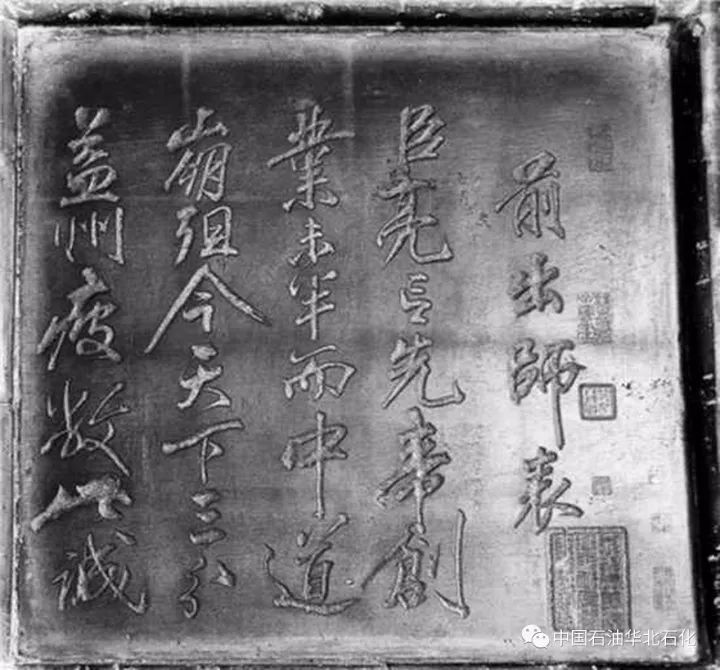 前出師表
臣亮言先帝創
業未半而中道
崩殂今天下三分
益州疲敝此誠
中国石油华北石化